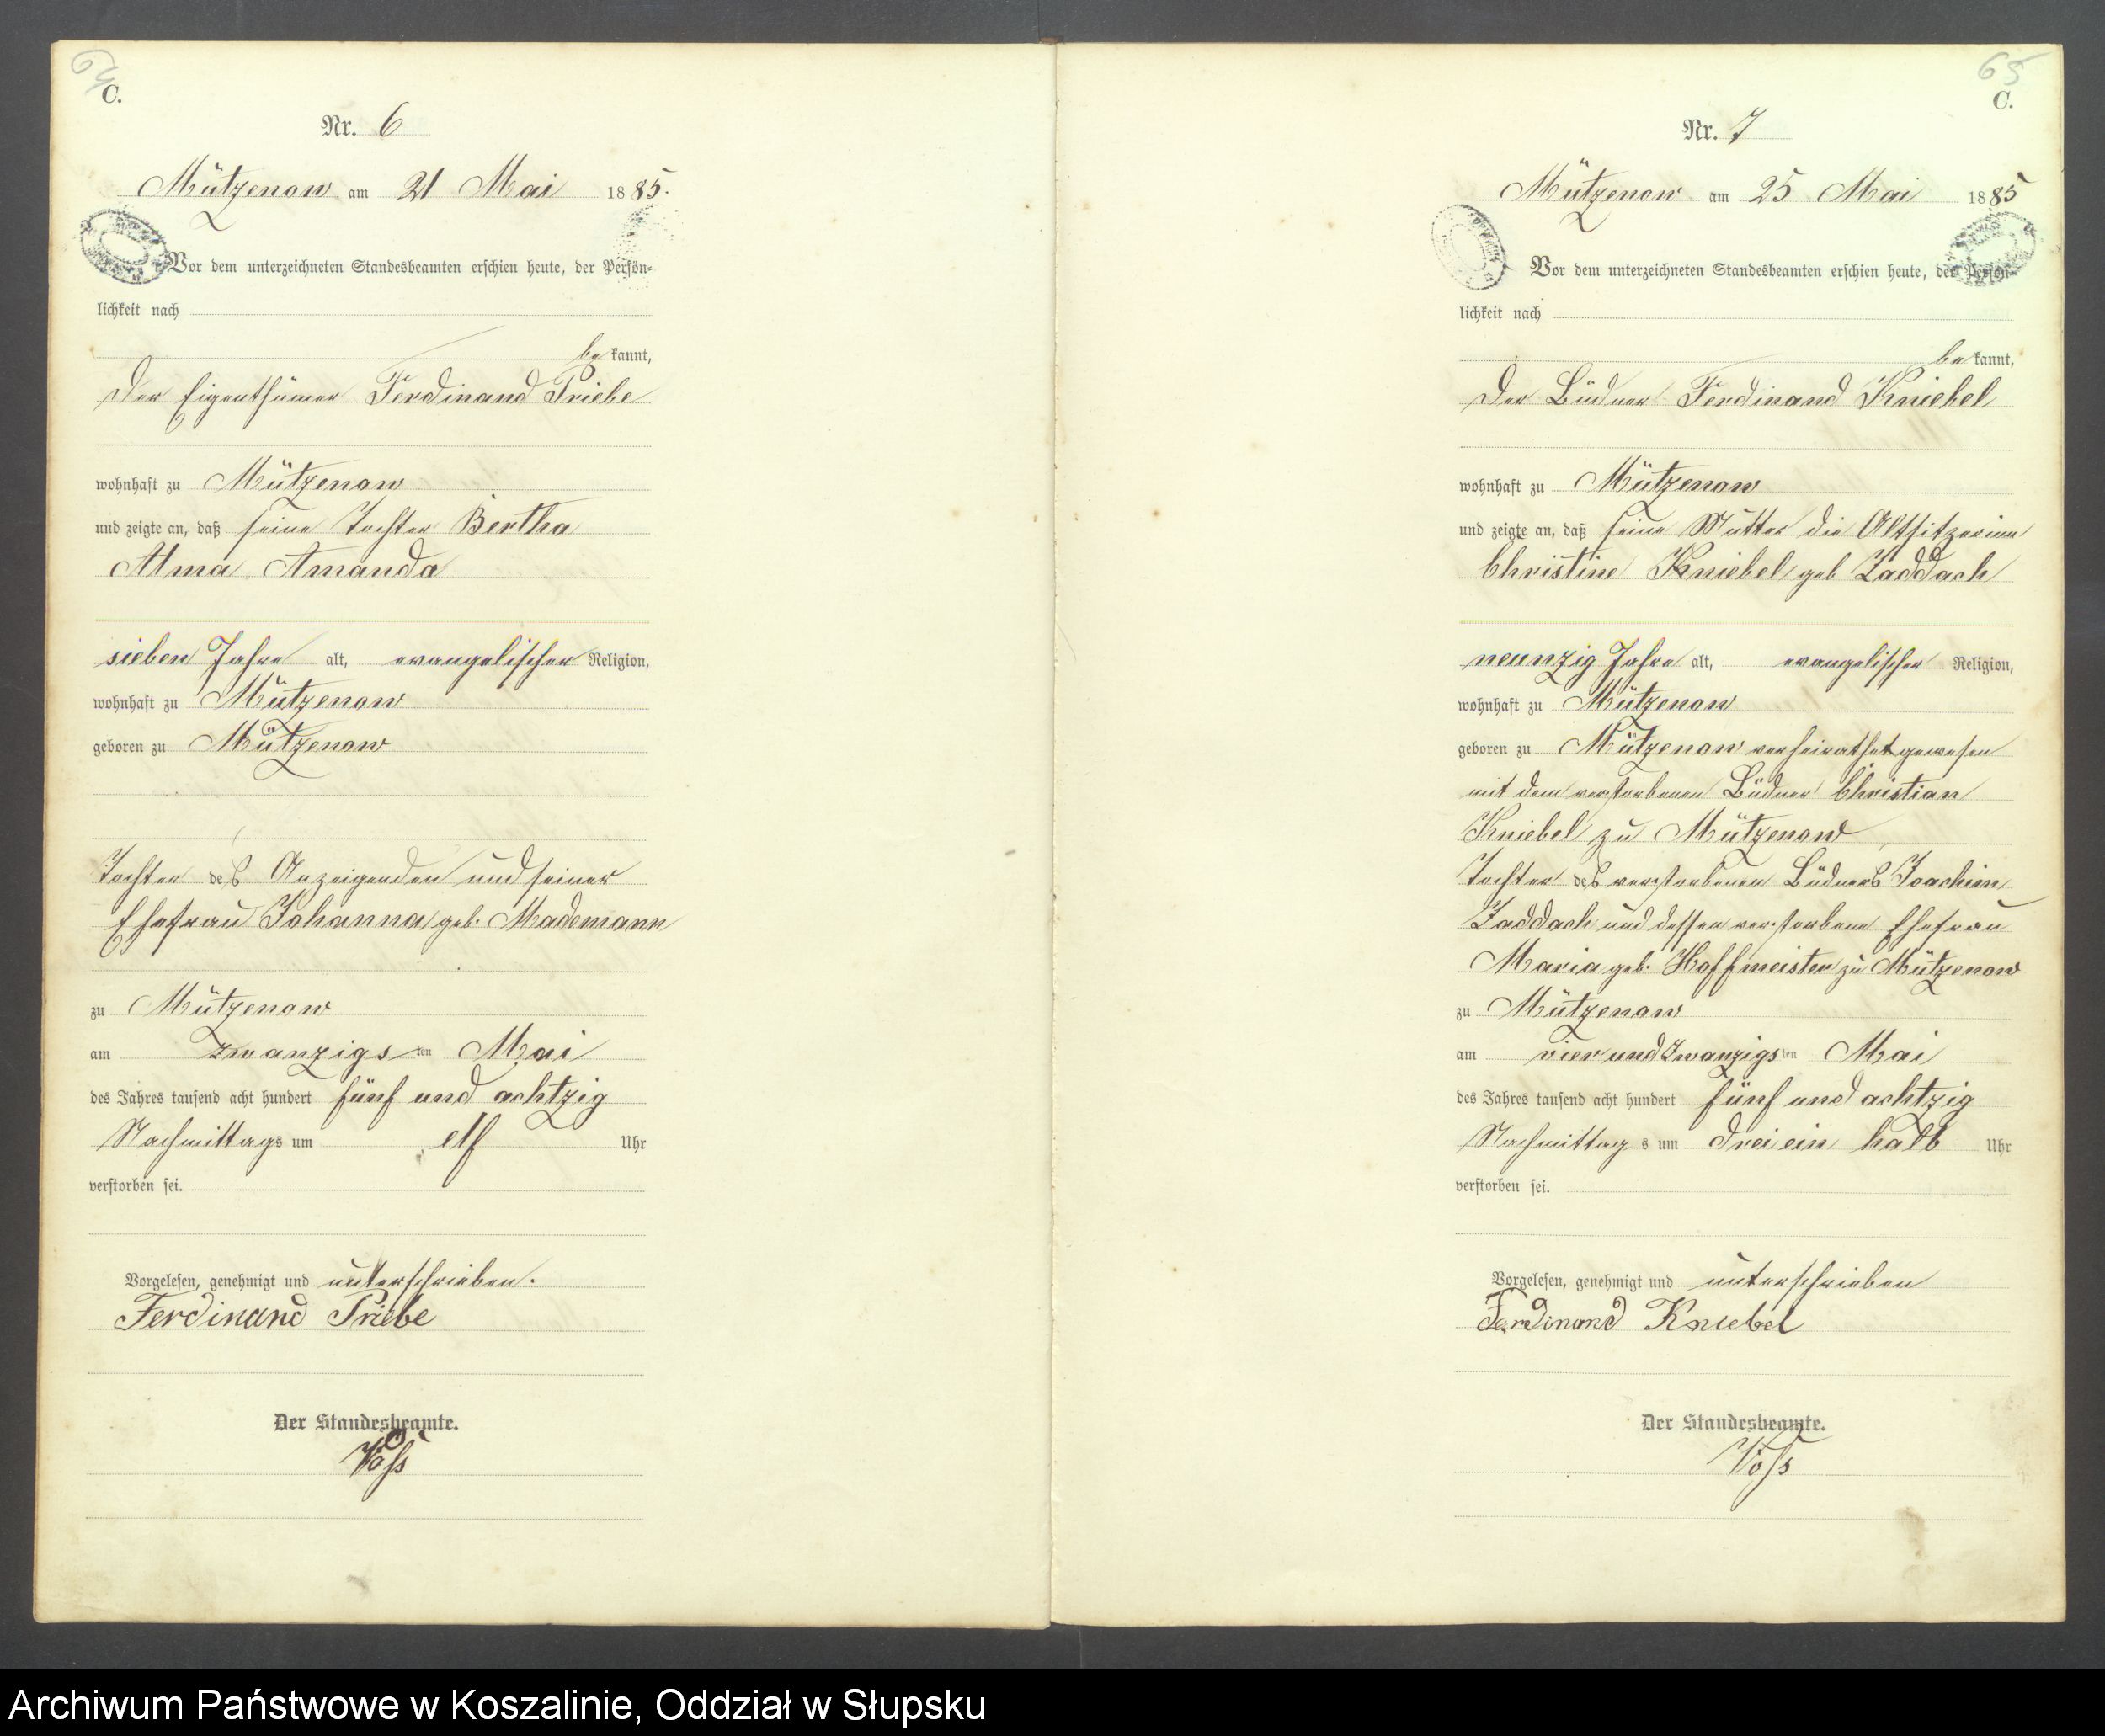 64
C.
Nr. 6
Mützenow am 21 Mai 1885.
Vor dem unterzeichneten Standesbeamten erschien heute, der Persön-
lichkeit nach
bekannt,
Der Eigenthümer Ferdinand Priebe
wohnhaft zu Mützenow
und zeigte an, daß seine Tochter Bertha
Alma Amanda
sieben Jahre alt, evangelischer Religion,
wohnhaft zu Mützenow
geboren zu Mützenow
Tochter des Anzeigenden und seiner
Ehefrau Johanna geb. Mademann
zu Mützenow
am zwanzigsten Mai
des Jahres tausend acht hundert fünf und achtzig
Nachmittags um elf Uhr
verstorben sei.
Vorgelesen, genehmigt und unterschrieben.
Ferdinand Priebe
Der Standesbeamte.
Voss
65
C.
Nr. 7
Mützenow am 25 Mai 1885
Vor dem unterzeichneten Standesbeamten erschien heute, der Persön-
lichkeit nach
bekannt,
Der Büdner Ferdinand Kniebel
wohnhaft zu Mützenow
und zeigte an, daß seine Mutter die Altsitzerinn
Christine Kniebel geb Zaddach
neunzig Jahre alt, evangelischer Religion,
wohnhaft zu Mützenow
geboren zu Mützenow verheirathet gewesen
mit dem verstorbenen Büdner Christian
Kniebel zu Mützenow
Tochter des verstorbenen Büdners Joachim
Zaddach und dessen verstorbene Ehefrau
Maria geb. Hoffmeister zu Mützenow
zu Mützenow
am vier und zwanzigsten Mai
des Jahres tausend acht hundert fünf und achtzig
Nachmittags um drei ein halb Uhr
verstorben sei.
Vorgelesen, genehmigt und unterschrieben
Ferdinand Kniebel
Der Standesbeamte.
Voss
Archiwum Państwowe w Koszalinie, Oddział w Słupsku